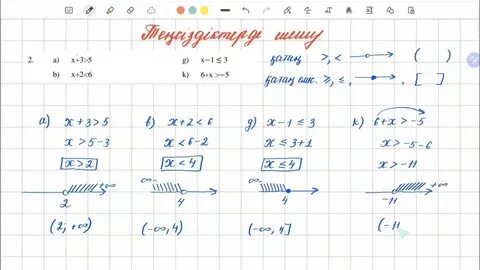 Теңсіздіктерді шешу
2. a) x+3>5 g) x−1 ≤ 3
b) x+2<6 k) 6+x >−5
қатаң >, < ( )
қатаң емес ≥, ≤, , [ ]
a) x+3>5 b) x+2<6 g) x−1≤3 k) 6+x>−5
x>5−3 x<6−2 x≤3+1 x>−5−6
x>2 x<4 x≤4 x>−11
+∞ −∞ −∞ +∞
2 4 4 −11
(2; +∞) (−∞, 4) (−∞, 4] (−11